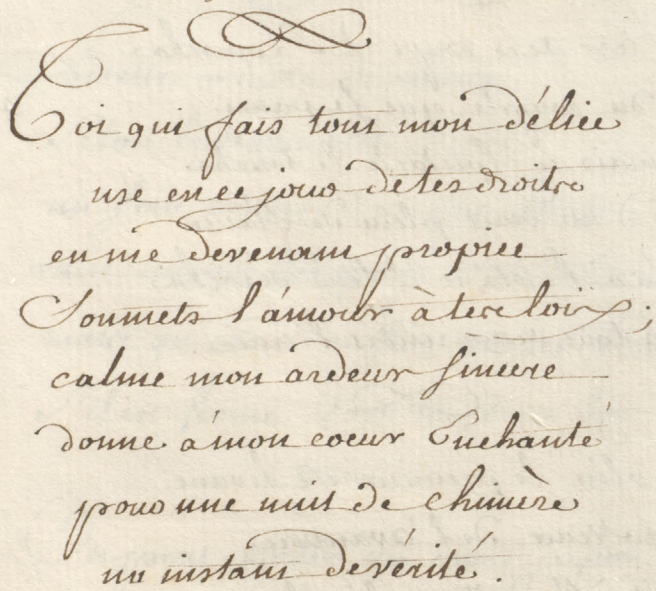 Toi qui fais tout mon délice
use en ce jour de tes droits
en me devenant propice
Soumets l'amour à tes loix;
calme mon ardeur sincere
donne à mon coeur Enchanté
pour une nuit de chimère
un instant de vérité.